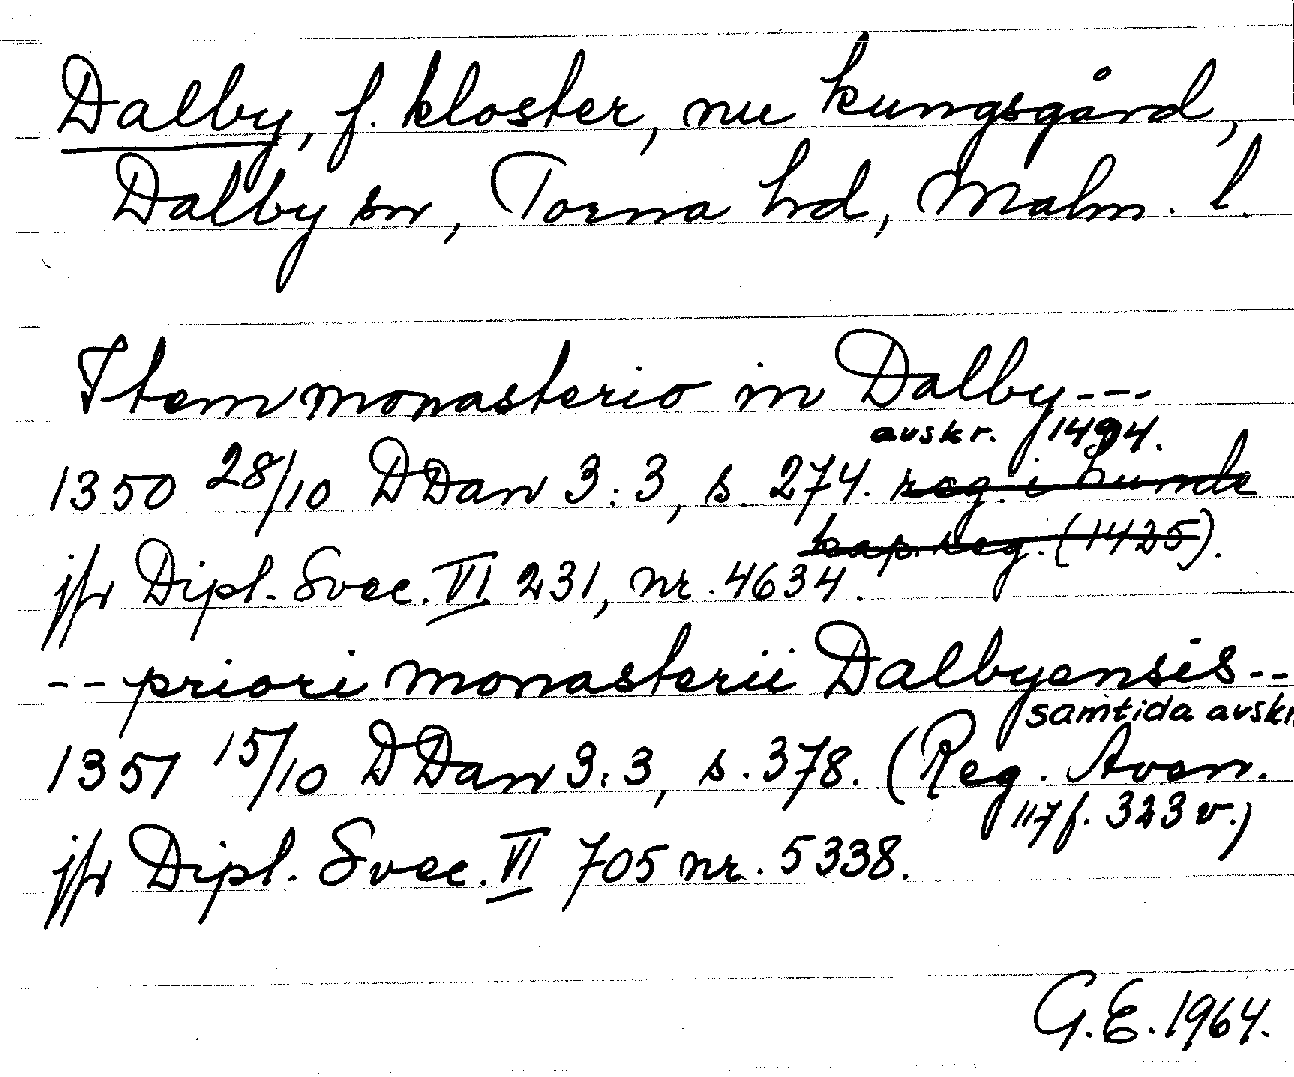 Dalby, f. kloster, nu kungsgård,
Dalby sn, Torna hd, Malm. l.
Item monasterio in Dalby---
avskr. f 1494.
1350 28/10 DDan 3:3, s. 274. reg. i Lunde
kap. reg. (1425).
jfr Dipl. Svec. VI 231, nr. 4634.
-- priori monasterii Dalbyensis--
samtida avskr
1351 15/10 DDan 3:3, s. 378. (Reg. Aven.
117 f. 323 v.)
jfr Dipl. Svec. VI 705 nr. 5338.
G.E. 1964.